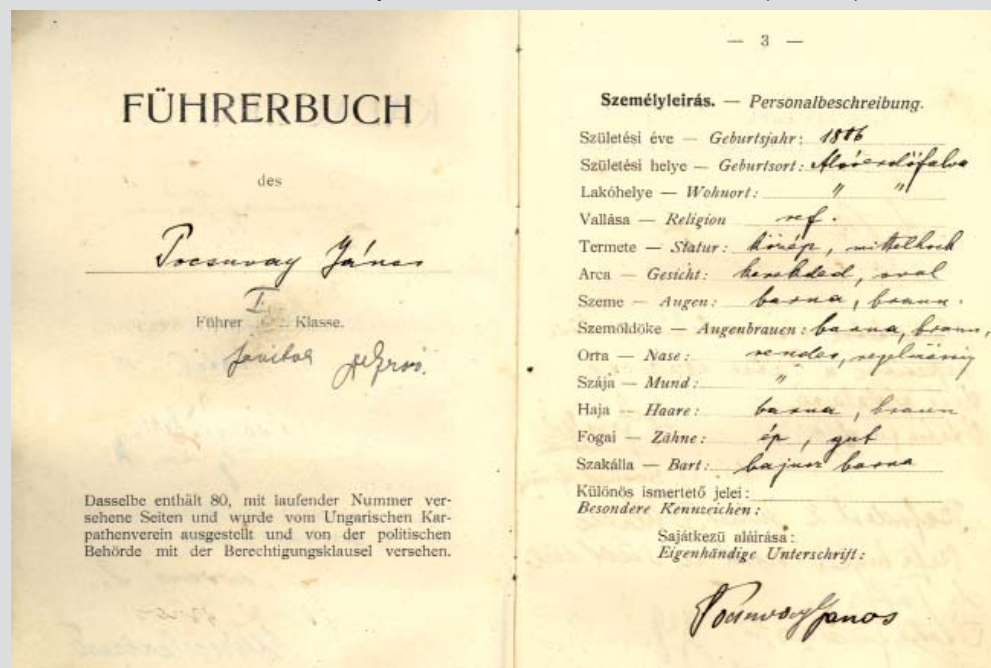 FÜHRERBUCH
des
Pocsuvay János
Führer I. Klasse.
javítva
Dasselbe enthält 80, mit laufender Nummer ver-
sehene Seiten und wurde vom Ungarischen Kar-
pathenverein ausgestellt und von der politischen
Behörde mit der Berechtigungsklausel versehen.
— 3 —
Személyleirás. — Personalbeschreibung.
Születési éve — Geburtsjahr: 1886
Születési helye — Geburtsort: Alsóerdőfalva
Lakóhelye — Wohnort: " "
Vallása — Religion ref.
Termete — Statur: közép, mittelhoch
Arca — Gesicht: kerekded, oval
Szeme — Augen: barna, braun.
Szemöldöke — Augenbrauen: barna, braun,
Orra — Nase: rendes, regelmässig
Szája — Mund: "
Haja — Haare: barna, braun
Fogai — Zähne: ép, gut
Szakálla — Bart: bajusz barna
Különös ismertető jelei:
Besondere Kennzeichen:
Sajátkezü aláirása:
Eigenhändige Unterschrift:
Pocsuvay János